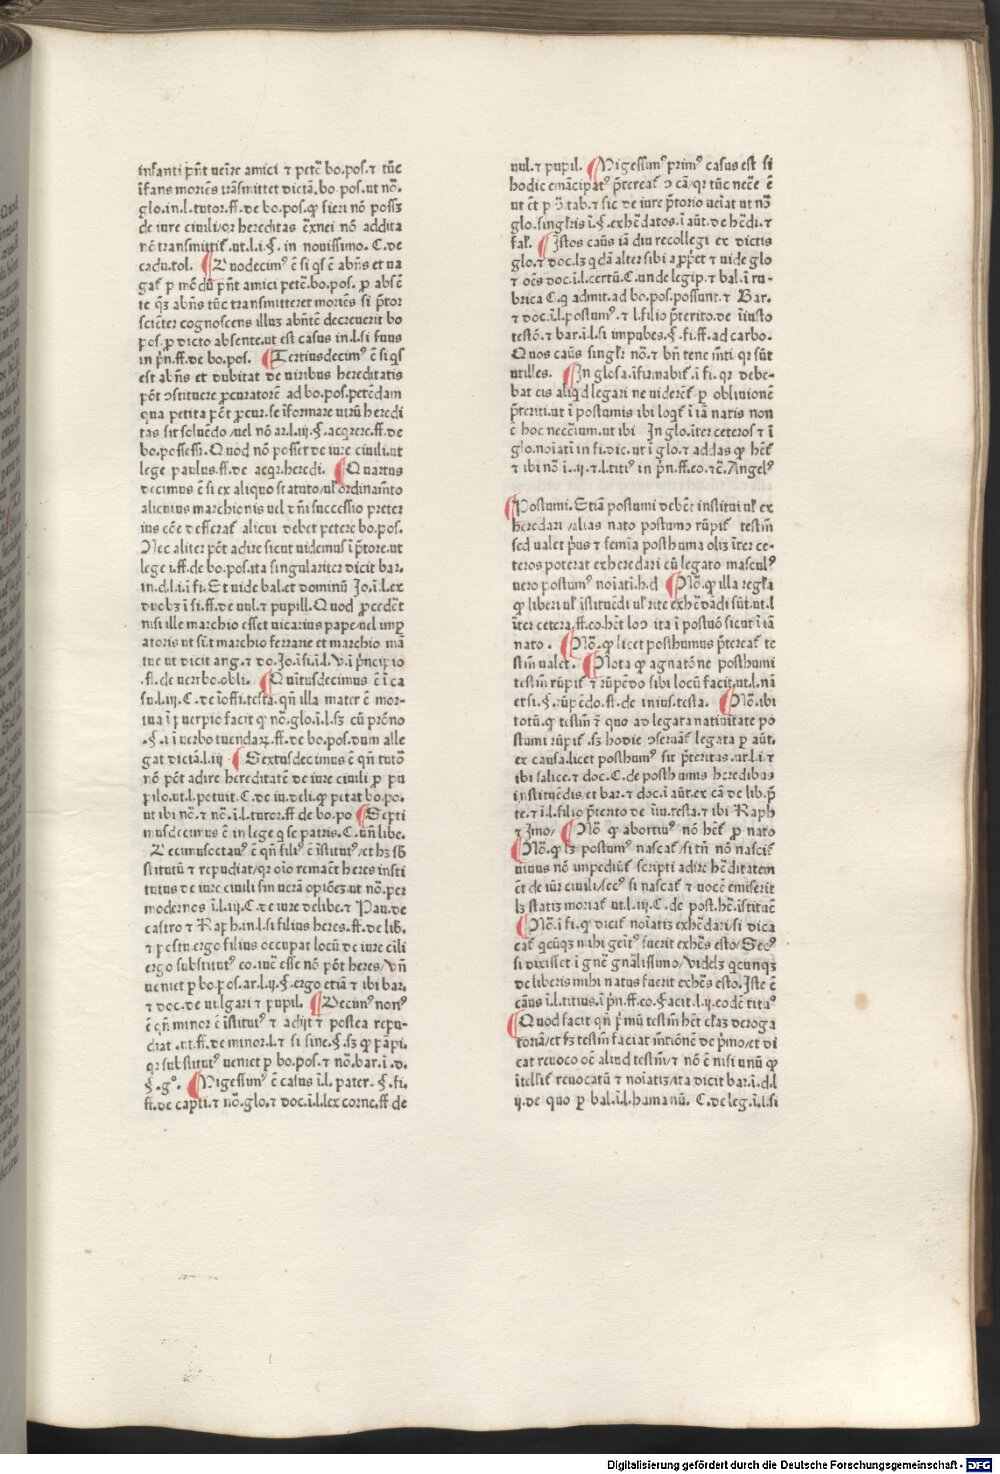 infanti pñt ueīre amici ⁊ petē bo.pos.⁊ tūc
īfans moriēs trāsmittet dictā.bo.pos.ut nō.
glo.in.l.tutor.ff.de bo.pos.ꝙ fieri nō possꝫ
de iure ciuili/qꝛ hereditas ēxnei nō addita
nō transmittit̄.ut.l.i.§.in nouissimo.C.de
cadu.tol. ¶ Duodecimꝰ ē si qs ē abñs et ua
gat̄ p mōdū pñt amici petē.bo.pos. ꝓ absē
te qꝫ abñs tūc transmitteret moriēs si p̄tor
sciēter cognoscens illuꝫ abñtē decreuerit bo
pos.ꝓ dicto absente.ut est casus in.l.si suus
in pñ.ff.de bo.pos. ¶ Tertiusdecimꝰ ē si qs
est abñs et dubitat de uiribus hereditatis
pōt ꝯstituere ꝓcuratorē ad bo.pos.petēdam
qua petita pōt ꝓcur.se īformare utrū heredi
tas sit soluēdo/uel nō ar.l.iij.§.acqrere.ff.de
bo.possessi.Quod nō posset de iure ciuili.ut
lege paulus.ff.de acqr.heredi. ¶ Quartus
decimus ē si ex aliquo statuto/ul̄ ordinamto
alicuius marchionis uel t̄mi successio preter
ius cōe defferat̄ alicui debet petere bo.pos.
Nec aliter pōt adire sicut uidemus ī p̄tore.ut
lege i.ff.de bo.pos.ita singulariter dicit bar.
in.d.l.i ī fi.Et uide bal.et dominū Jo.ī.l.ex
duobꝫ ī si.ff.de uul.et pupill.Quod ꝓcedēt
nisi ille marchio esset uicarius pape/uel imꝑ
atoris ut sūt marchio ferrarie et marchio mā
tue ut dicit ang.⁊ do.Jo.ī si.ī.l.V.ī p̄ncipio
.ff.de uerbo.obli. ¶ Quītusdecimus ē ī ca
su.l.iij.C.de īoffi.testa.qñ illa mater ē mor-
tua ī puerpio facit ꝙ nō.glo.ī.l.sꝫ cū prōno
.§.i ī uerbo tuendaꝝ.ff.de bo.pos.dum alle
gat dictā.l.iij ¶ Sextusdecimus ē qñ tutō
nō pōt adire hereditatē de iure ciuili ꝑ pu
pilo.ut.l.potuit.C.de iu.deli.ꝙ pitat bo.po.
ut ibi nō.⁊ nō.ī.l.tutor.ff de bo.po ¶ Septi
musdecimus ē in lege q se patris.C.uñ libe.
Decimusoctauꝰ ē qñ filiꝰ ē īstitutꝰ/et hꝫ sb̄
stitutū ⁊ repudiat/qꝛ oīo remaēt heres insti
tutus de iure ciuili sm uerā opiōeꝫ.ut nō.per
modernos ī.l.iij.C.de iure delibe.⁊ Pau.de
castro ⁊ Raph.in.l.si filius heres.ff.de lib̄.
⁊ p estu.ergo filius occupat locū de iure ciīli
ergo substitutꝰ eo.iuē esse nō pōt heres/vñ
ueniet p bo.pos.ar.l.ij.§.ergo etiā ⁊ ibi bar.
⁊ doc.de uulgari ⁊ pupil. ¶ Decimꝰ nonꝰ
ē qñ minor ē īstitutꝰ ⁊ adijt ⁊ postea repu-
diat .ut.ff.de minor.l.⁊ si sine.§.sꝫ ꝙ papi.
qꝛ substitutꝰ ueniet p bo.pos.⁊ nō.bar.ī.d.
§.gº. ¶ Vigessimꝰ ē casus ī.l. pater. §.fi.
ff.de capti.⁊ nō.glo.⁊ doc.ī.l.lex corne.ff de
uul.⁊ pupil. ¶ Vigessimꝰ primꝰ casus est si
hodie emācipatꝰ p̄tereat̄ ꝯ cā/qꝛ tūc necē ē
ut ēt p ꝯ.tab.⁊ sic de iure p̄torio ueīat ut nō
glo.singl̄ris ī.§.exhēdatos.ī aut̄.de hēdi.⁊
fal. ¶ Istos caūs iā diu recollegi ex dictis
glo.⁊ doc.lꝫ qdā alter sibi apꝓpēt ⁊ uide glo
⁊ oēs doc.ī.l.certū.C.unde legip.⁊ bal.ī ru-
brica C.q admit.ad bo.pos.possunt.⁊ Bar.
⁊ doc.ī.l.postumꝰ.⁊ l.filio p̄terito.de īiusto
testō.⁊ bar.ī.l.si impubes.§.fi.ff.ad carbo.
Quos caūs singl̄r nō.⁊ bñ tene mti qꝛ sūt
utilles. ¶ In glosa.īfirmabit̄.ī fi.qꝛ debe-
bat eis aliqd legari ne uiderēt̄ p obliuionē
p̄teriti.ut ī postumis ibi loqt̄ ī iā natis non
ē hoc necc̄ium.ut ibi In glo.īter ceteros ⁊ ī
glo.noīati in fi.dic.ut ī glo.⁊ addas ꝙ hēt̄
⁊ ibi nō ī..ij.⁊.l.titiꝰ in pñ.ff.eo.⁊c̄.Angelꝰ
¶ Postumi.Etiā postumi debēt institui ul̄ ex
heredari /alias nato postumo rūpit̄ testm̄
sed ualet pꝰus ⁊ femīa posthuma olīꝫ īter ce-
teros poterat exheredari cū legato masculꝰ
uero postumꝰ noīati.h.d ¶ Nō.ꝙ illa regl̄a
ꝙ liberi ul̄ īstituēdi ul̄ rite exhēdādi sūt.ut.l
īter cetera.ff.eo.hēt locū ita ī postuō sicut ī iā
nato . ¶ Nō.ꝙ licet posthumus p̄tereat̄ te
stm̄ ualet. ¶ Nota ꝙ agnatōne posthumi
testm̄ rūpit̄ ⁊ rūpēdo sibi locū facit.ut.l.nā
et si.§.rūpēdo.ff.de inius.testa. ¶ Nō.ibi
totū.ꝙ testm̄ r̄ quo ad legata natiuitate po
stumi rūpit̄.sꝫ hodie ꝯseruāt̄ legata p aut̄.
ex causa.licet posthumꝰ sit p̄teritas.ut.l.i.⁊
ibi salice.⁊ doc.C.de posthumis heredibus
instituēdis et bar.⁊ doc.ī aut̄.ex cā de lib.p̄
te.⁊ ī.l.filio p̄terito de īiu.testa.⁊ ibi Raph
⁊ Imo/ ¶ Nō ꝙ abortiuꝰ nō hēt̄ ꝓ nato
¶ Nō.ꝙ lꝫ postumꝰ nascat̄/si tñ nō nascit̄
uiuus nō impedit̄ scripti adire hēditatem
ēt de iur̄ ciuili/secꝰ si nascat̄ ⁊ uocē emiserit
lꝫ statiꝫ moriat̄ ut.l.iij.C.de post.hē.īstituē
¶ Nō.ī fi.ꝙ dicit̄ noīatiꝫ exhēdari/si dica
cat̄ qcūqꝫ mihi geītꝰ fuerit exhēs esto/Secꝰ
si dixisset ī gñe gñalissimo/videlꝫ qcunqꝫ
de liberis mihi natus fuerit exhēs esto.Iste ē
caūs ī.l.titius.ī pñ.ff.eo.§acit.l.ij.eodē tituꝰ
¶ Quod facit qñ p̄mū testm̄ hēt clāꝫ deroga
toriā/et ẜꝫ testm̄ faciat mētionē de p̄mo/et di
cat reuoco oē aliud testm̄/⁊ nō ē nisi unū ꝙ
ītelsit̄ reuocatū ⁊ noīatiꝫ/ita dicit bar.ī.d.l
ij.de quo p bal.ī.l.humanū. C.de leg.ī.l.si
Digitalisierung gefördert durch die Deutsche Forschungsgemeinschaft - DFG